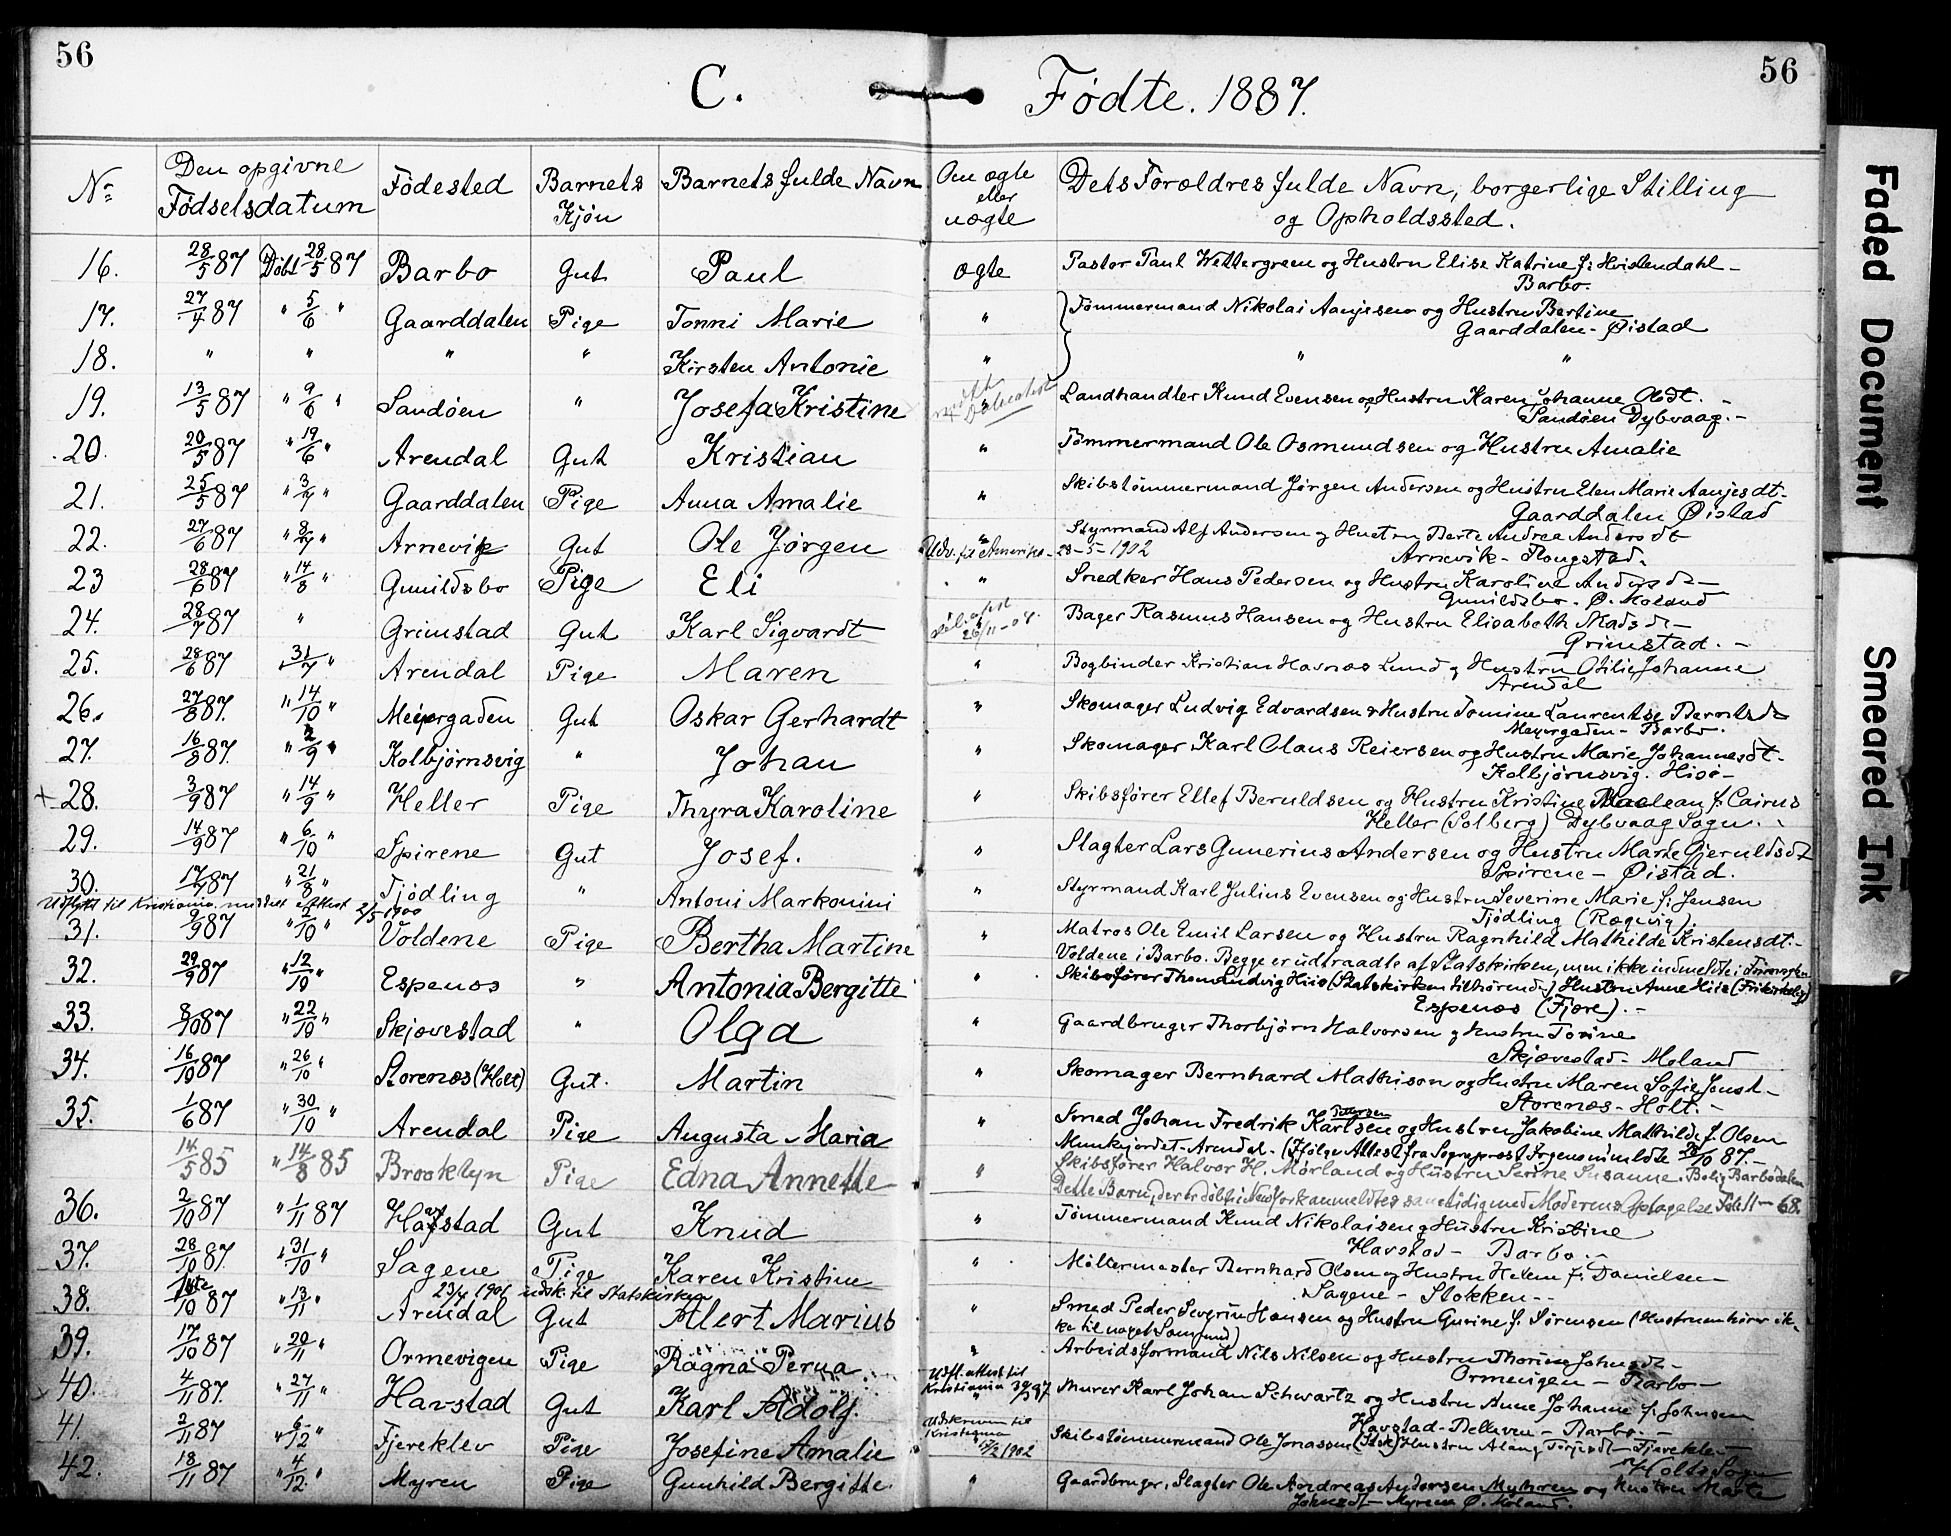 56
56
C.
Fødte. 1887.
Nr.
Den opgivne Fødselsdatum
Fødested
Barnets Kjøn
Barnets fulde Navn
Om ægte eller uægte
Dets Forældres fulde Navn, borgerlige Stilling og Opholdssted.
16. 28/5 87 Døbt 28/5 87 Barbo Gut Paul ægte Pastor Paul Wettergreen og Hustru Elise Katrine f: Hvistendahl –
Barbo.
17. 27/4 87 " 5/6 " Gaarddalen Pige Tonni Marie " Tømmermand Nikolai Aanjesen og Hustru Bertine
Gaarddalen – Øistad
18. " " " " Kirsten Antonie " " "
19. 13/5 87 " 9/6 " Sandøen " Josefa Kristine " Landhandler Knud Evensen og Hustru Karen Johanne Olsdt. –
Sandøen Dybvaag. –
20. 20/5 87 " 19/6 " Arendal Gut Kristian " Tømmermand Ole Osmundsen og Hustru Amalie
21. 25/5 87 " 3/7 " Gaarddalen Pige Anna Amalie " Skibstømmermand Jørgen Andersen og Hustru Elen Marie Aanjesdt.
Gaarddalen Øistad
22. 27/6 87 " 8/7 " Arnevik Gut Ole Jørgen " Styrmand Alf Andersen og Hustru Berte Andrea Andersdt
Udv. til Amerika – 23-5-1902
Arnevik – Flougstad.
23 28/6 87 " 14/8 " Gunildsbo Pige Eli " Snedker Hans Pedersen og Hustru Karoline Andersdt –
Gunildsbo. Ø. Moland
24. 28/7 87 " Grimstad Gut Karl Sigvardt 26/11-04. Bager Rasmus Hansen og Hustru Elisabeth Madsdt –
Grimstad. –
25. 28/6 87 " 31/7 " Arendal Pige Maren " Bogbinder Kristian Havnøs Lund og Hustru Otilie Johanne
Arendal
26. 27/8 87. " 14/10 " Meiergaden Gut Oskar Gerhardt " Skomager Ludvig Edvardsen & Hustru Tomine Laurentse Berntsdt
Meyergaden – Barbo.
27. 16/8 87. " 2/9 " Kolbjørnsvig " Johan " Skomager Karl Olaus Reiersen og Hustru Marie Johannesdt.
Kolbjørnsvig. Hisø –
+ 28. 3/9 87 " 14/9 " Heller Pige Thyra Karoline " Skibsfører Ellef Beruldsen og Hustru Kristine Maclean f. Cairns
Heller (Solberg) Dybvaag Sogn.
29. 14/9 87 " 6/10 " Spirene Gut Josef. " Slagter Lars Gunerius Andersen og Hustru Marte Gjeruldsdt
Spirene – Øistad.
30. 17/7 87 " 21/8 " Tjødling " Antoni Markonini " Styrmand Karl Julius Evensen og Hustru Severine Marie f: Jensen
Udflytt til Kristiania meddelt Attest 2/5 1900
Tjødling (Rægevig).
31. 9/9 87 " 2/10 " Voldene Pige Bertha Martine " Matros Ole Emil Larsen og Hustru Ragnhild Mathilde Kristensdt. –
Voldene i Barbo. Begge er udtraadte af Statskirken, men ikke indmeldte i Frimenigh.
32. 29/9 87 " 12/10 " Espenes " Antonia Bergitte " Skibsfører Thom Ludvig Hiis (Statskirken tilhørende) Hustru Anne Hiis (Frikirkelig)
Espenes (Fjære). –
33. 8/10 87 " 22/10 " Skjævestad " Olga " Gaardbruger Thorbjørn Halvorsen og Hustru Torine
Skjævestad – Moland
34. 16/10 87 " 26/10 " Storenes (Holt) Gut. Martin " Skomager Bernhard Mathison og Hustru Maren Sofie Jensdt –
Storenæs – Holt. –
35. 1/6 87 " 30/10 " Arendal Pige Augusta Maria " Smed Johan Fredrik Karlsen og Hustru Jakobine Mathilde f. Olsen
Munkejordet – Arendal. – (Ifølge Attest fra Sogneprest Irgens nimldte 28/10 87. –
14/5 85 " 14/8 85 Brooklyn Pige Edna Annette " Skibsfører Halvor H. Mørland og Hustru Serine Susanne. Bolig Barbodalen
Dette Barn, der er døbt i New York anmeldtes samtidig med Moderens Optagelse Fol: 11 – 68.
36. 2/10 87 " 1/11 87 Havstad Gut Knud " Tømmermand Knud Nikolaisen og Hustru Kristine
Havstad – Barbo. –
37. 28/10 87. " 31/10 " Sagene Pige Karen Kristine " Møllermester Bernhard Olsen og Hustru Helene f: Danielsen –
Sagene – Stokken – –
23/4 1901 udsk. til Statskirken
38. 10 87 " 13/11 " Arendal Gut Alert Marius " Smed Peder Severin Hansen og Hustru Gurine f. Sørensen (Hustruen hører ik-
ke til noget Samfund)
39. 17/10 87 " 20/11 " Ormevigen Pige Ragna Perna " Arbeidsformand Nils Nilsen og Hustru Thorine Johnsdt –
Ormevigen – Barbo –
40. 4/11 87. " 27/11 " Havstad Gut Karl Adolf. Udfl. attest til Kristiania 97 Murer Karl Johan Schwartz og Hustru Anne Johanne f. Johnsen
Havstad – Barbo. –
41. 2/11 87 " 6/12 " Fjereklev Pige Josefine Amalie Udskreven til Kristiania 1902 Skibstømmermand Ole Jonassen (Stsk) Hustru Alang Terjesdt – Fjæreklev –
Holts Sogn
42. 18/11 87 " 4/12 " Myren Pige Gunhild Bergitte. " Gaardbruger, Slagter Ole Andreas Andersen Myhren og Hustru Marte
Johnsdt – Myren Ø. Moland.
Faded Document
Smeared Ink